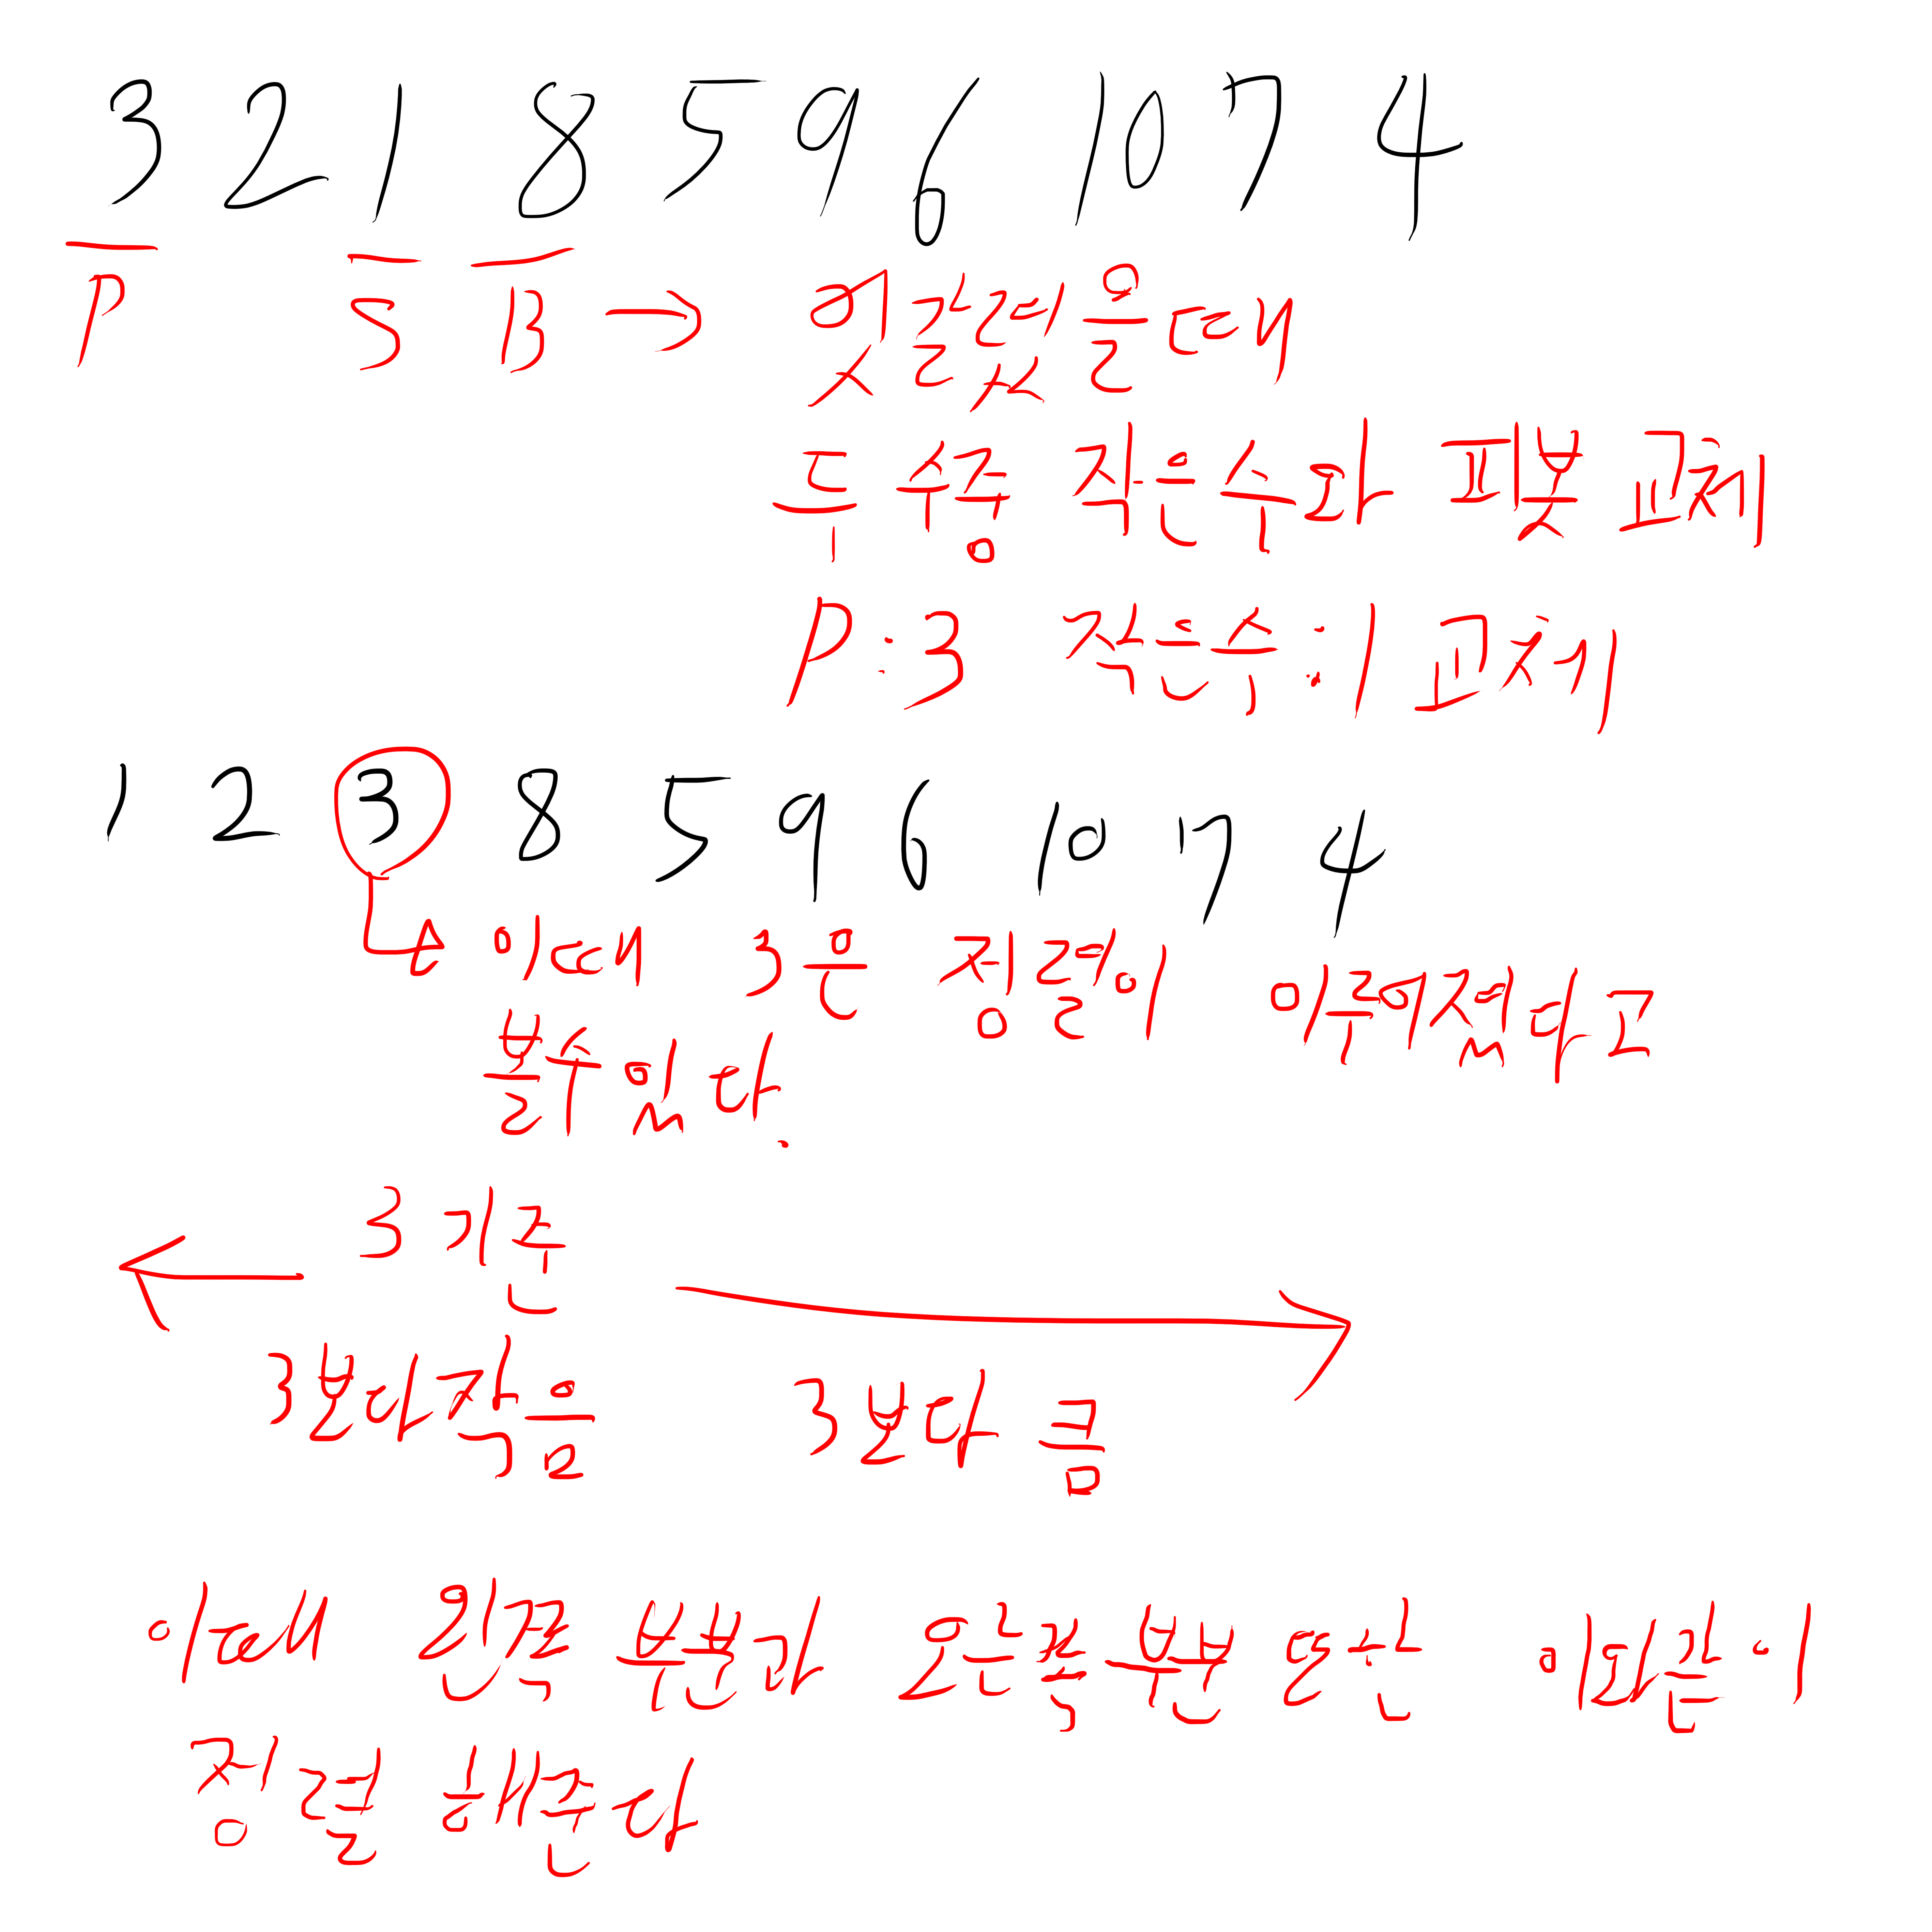 3 2 1 8 5 9 6 10 7 4
P S B → 엇갈렸을때
두수중 작은수와 피봇 교체
P : 3 작은수 : 1 교체
1 2 3 8 5 9 6 10 7 4
이때 3은 정렬이 이루어졌다고
볼수있다.
3 기준
3보다작음 3보다 큼
이때 왼쪽 부분과 오른쪽 부분 은
정렬 해준다